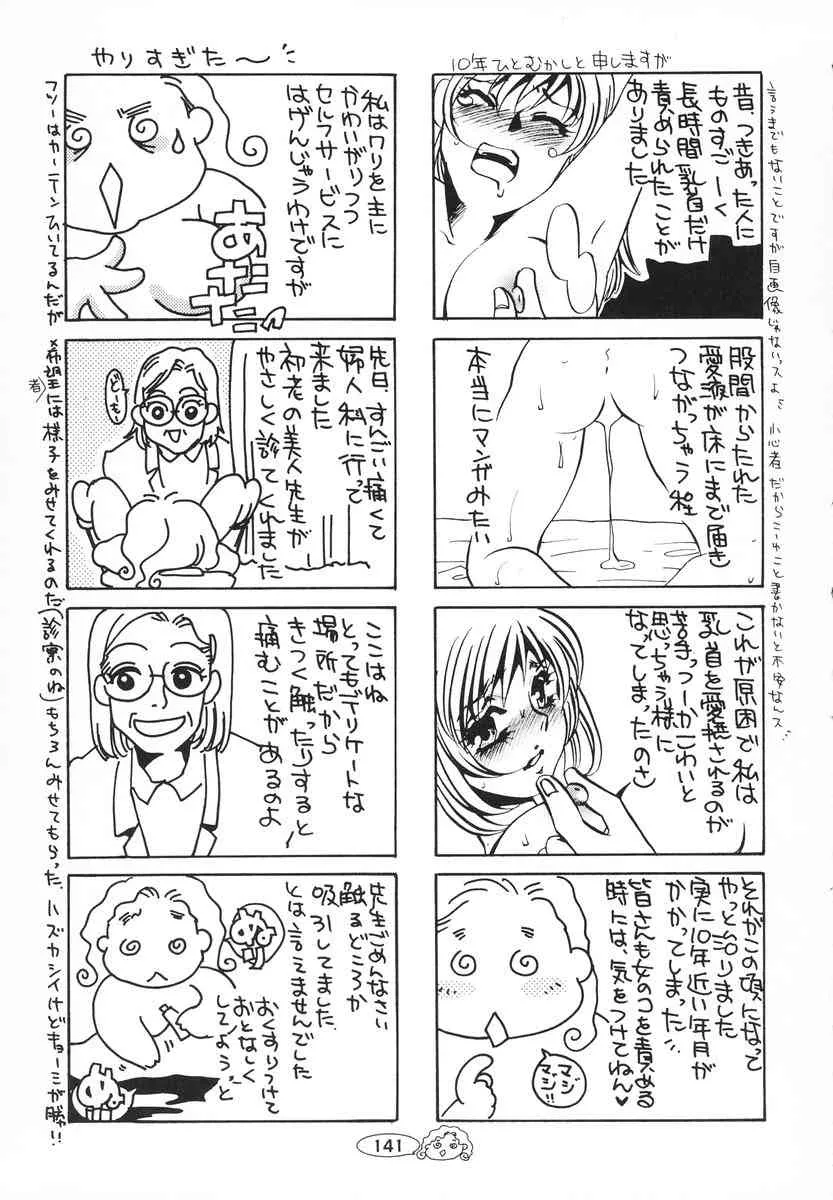 10年ひとむかしと申しますが
昔、つきあった人に
ものすごーく
長時間乳首だけ
責められたことが
ありました
股間からたれた
愛液が床にまで届き
つながっちゃう程
本当にマンガみたい
これが原因で私は
乳首を愛撫されるのが
苦手っつーかこわいと
思っちゃう様に
なってしまったのさ
それがこの頃になって
やっと治りました
実に10年近い年月が
かかってしまった
皆さんも女のコを責める
時には、気をつけてねん♥
マジ
マジ!!
言うまでもないことですが自画像じゃないっスよ 小心者だからこーゆーこと書かないと不安なんス
やりすぎた〜
私はワリを主に
かわいがりつつ
セルフサービスに
はげんじゃうわけですが
あだだ
先日、すんごい痛くて
婦人科に行って
来ました
初老の美人先生が
やさしく診てくれました
どーも
ここはね
とってもデリケートな
場所だから
きつく触ったりすると
痛むことがあるのよ
先生ごめんなさい
触るどころか
吸引してました
とは言えませんでした
おくすりつけて
おとなしく
してようっと
フツーはカーテンひいてるんだが
*希望者には様子をみせてくれるのだ(診察のね)もちろんみせてもらった、ハズカシイけどキョーミが勝ツ!!
141